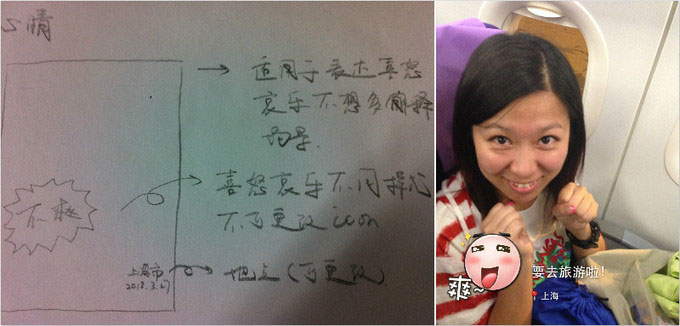 心情
适用于表达喜怒
哀乐不想多解释
场景.
喜怒哀乐不同模式
不可更改icon
不爽
上海市
地点(可更改)
爽~
要去旅游啦!
上海